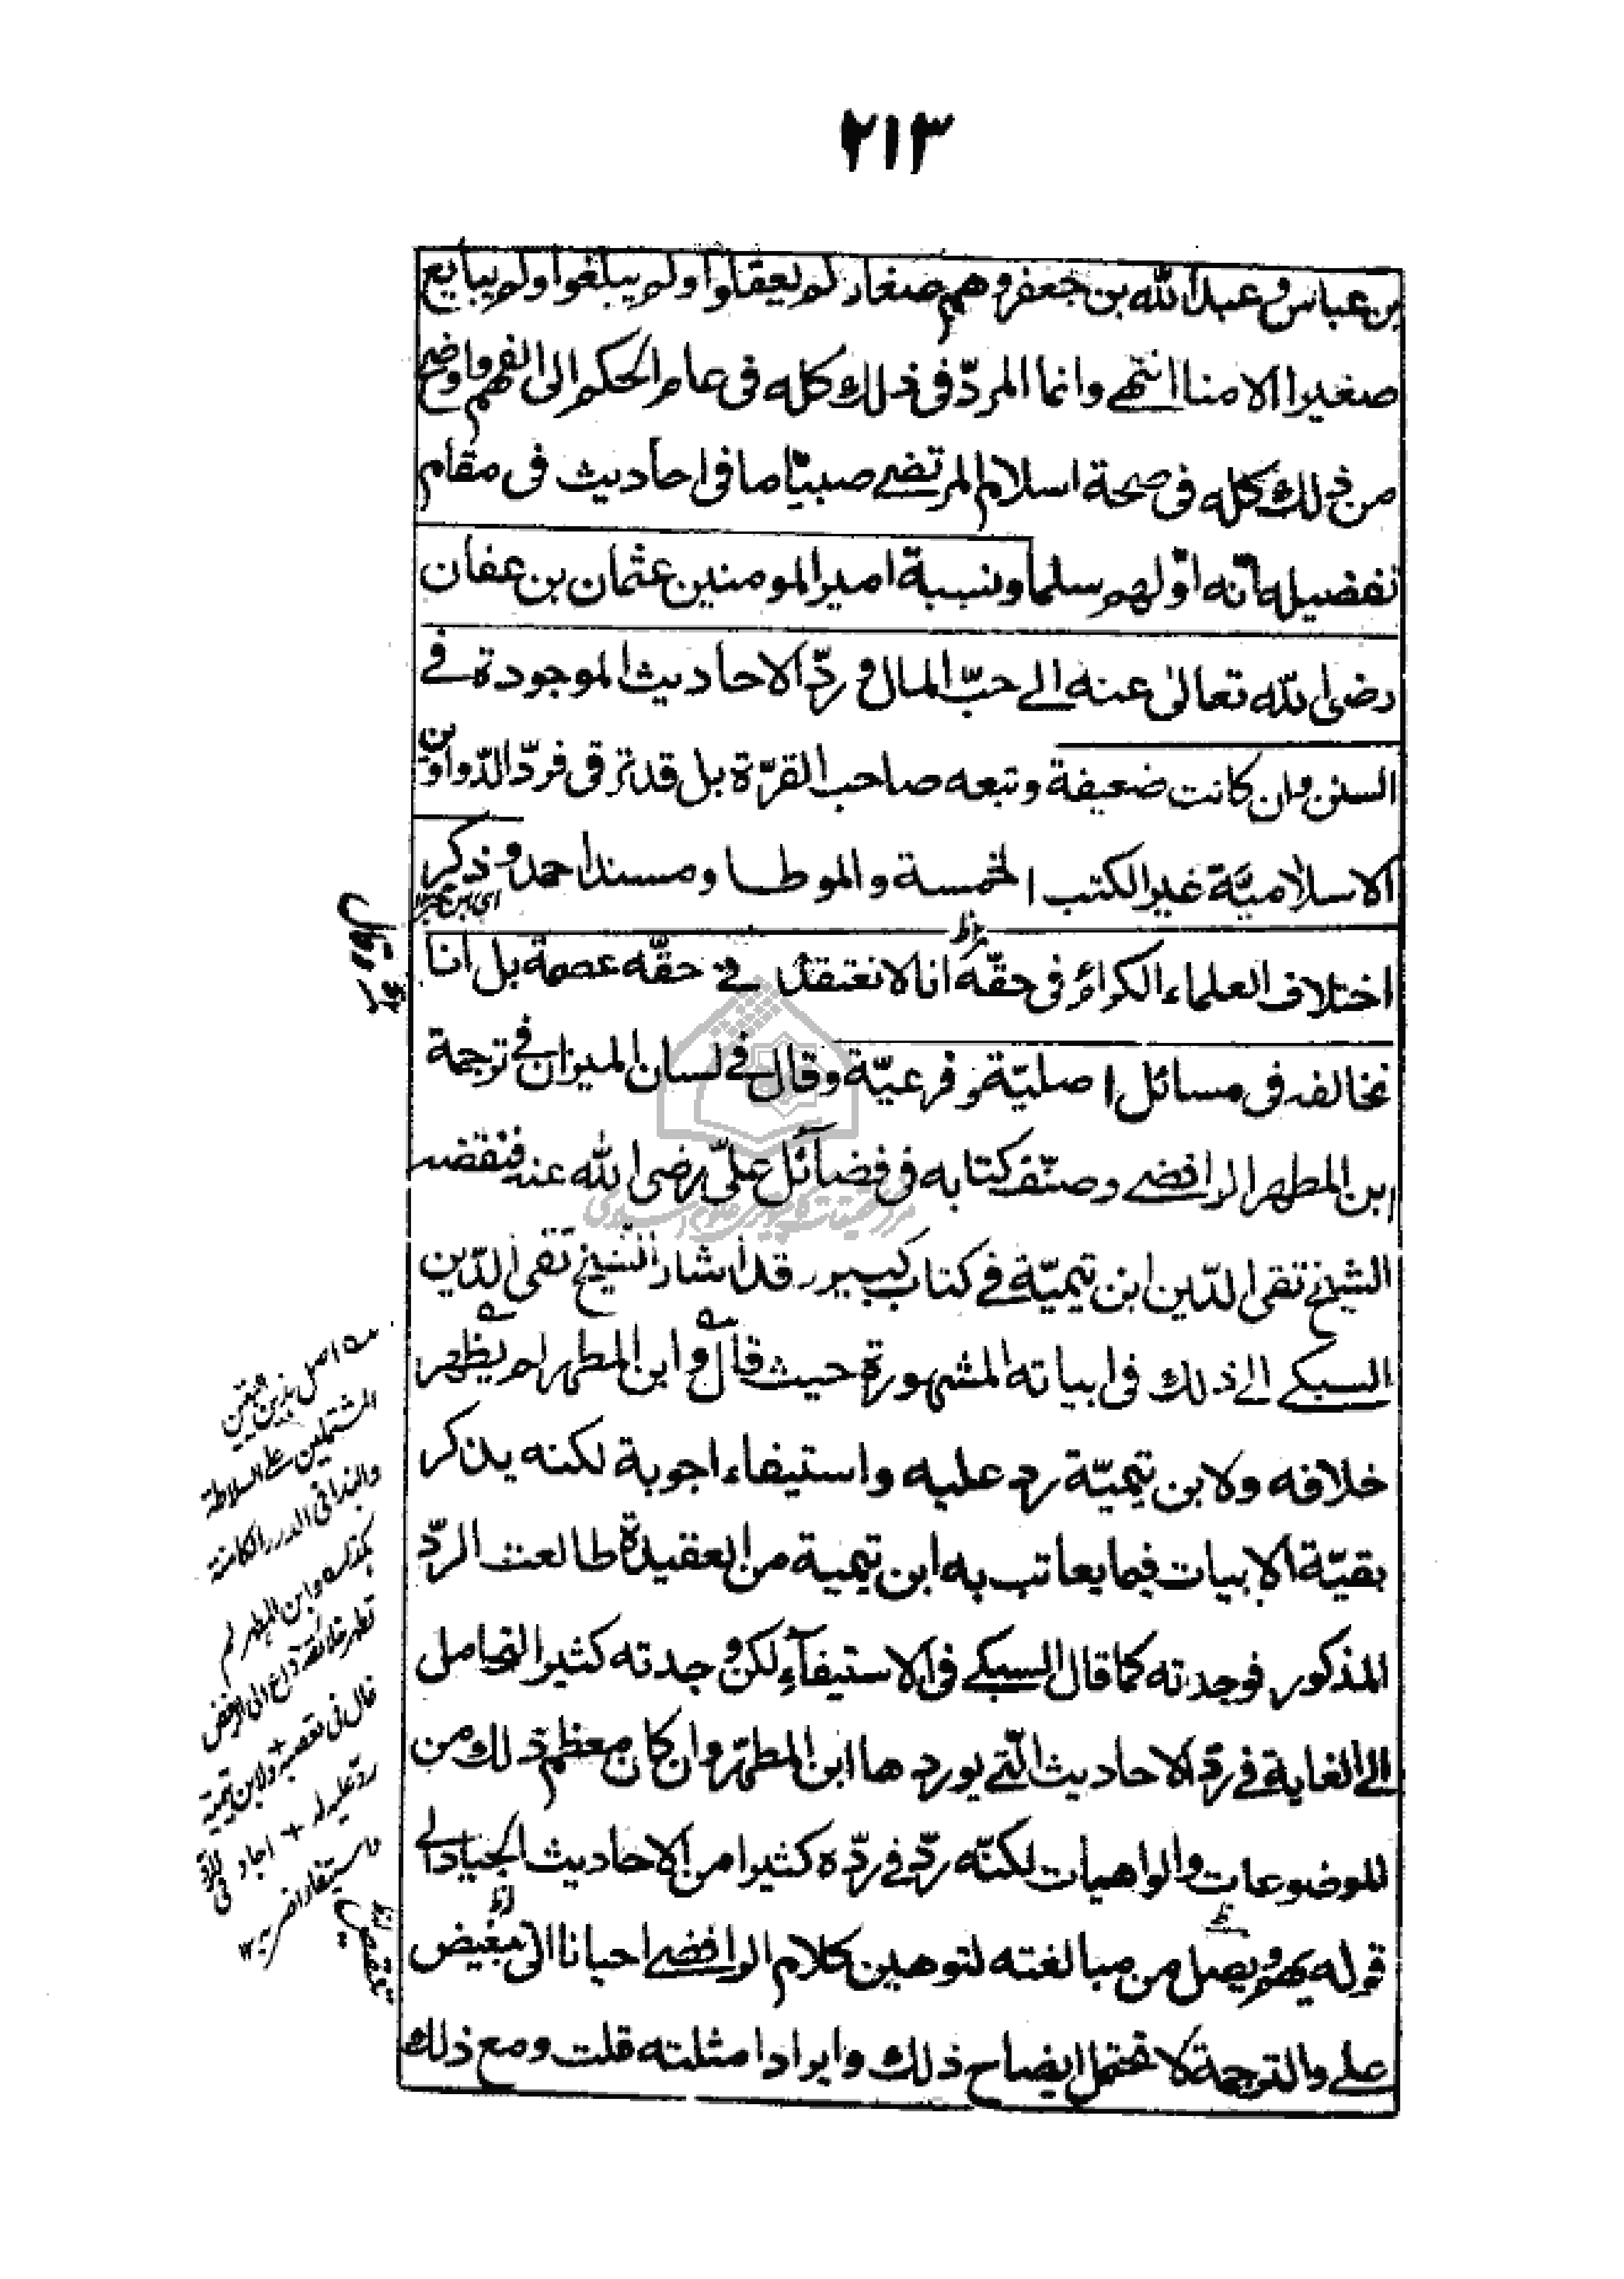 ٢١٣
بن عباس و عبد الله بن جعفر و هم صغار لم يعقلوا و لم يبلغوا و لم يبايع
صغيرا الا منا انتهى وانما المردّ فى ذلك كله فى عام الحكم الى الفهم واوضح
من ذلك كله فى صحة اسلام المرتضى صبيّا ما فى احاديث فى مقام
تفضيله بانّه اوّلهم سلما ونسبة امير المومنين عثمان بن عفان
رضى الله تعالى عنه الى حبّ المال و ردّ الاحاديث الموجودة فى
السنن وان كانت ضعيفة وتبعه صاحب القرّة بل قد ترقى فردّ الدّواوين
الاسلاميّة غير الكتب الخمسة والموطا ومسند احمد وذكر
اختلاف العلماء الكرام فى حقّه انا لا نعتقد فى حقّه عصمة بل انا
نخالفه فى مسائل اصليّة و فرعيّة وقال فى لسان الميزان فى ترجمة
ابن المطهر الرافضى وصنّف كتابه فى فضائل علىّ رضى الله عنه فنقضه
الشيخ تقى الدّين ابن تيميّة فى كتاب كبير قد اشار الشيخ تقى الدّين
السبكى الى ذلك فى ابياته المشهورة حيث قال و ابن المطهر لم يظهر
خلافه ولابن تيميّة رد عليه واستيفاء اجوبة لكنه يذكر
بقيّة الابيات فيما يعاتب به ابن تيمية من العقيدة طالعت الردّ
المذكور فوجدته كما قال السبكى فى الاستيفآء لكن وجدته كثير التحامل
الى الغاية فى ردّ الاحاديث الّتى يوردها ابن المطهّر وان كان معظم ذلك من
الموضوعات والواهيات لكنّه ردّ فى ردّه كثيرا من الاحاديث الجياد الى
قوله وصل من مبالغته لتوهين كلام الرافضى احيانا الى
على والترجمة لا تحتمل ايضاح ذلك وايراد امثلته قلت ومع ذلك
المشتملين على السلاطة
فى الدرر الكامنة
وابن المطهر لم
داع الى الرفض
ولابن تيمية
رد عليه